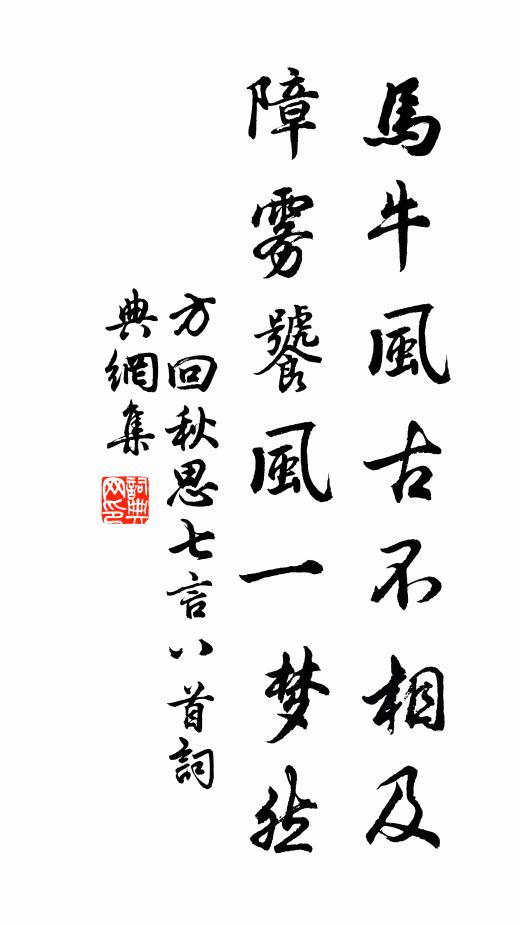 馬牛風古不相及
障雾饕風一梦然
方回秋思七言八首詞
典網集
詞典網印